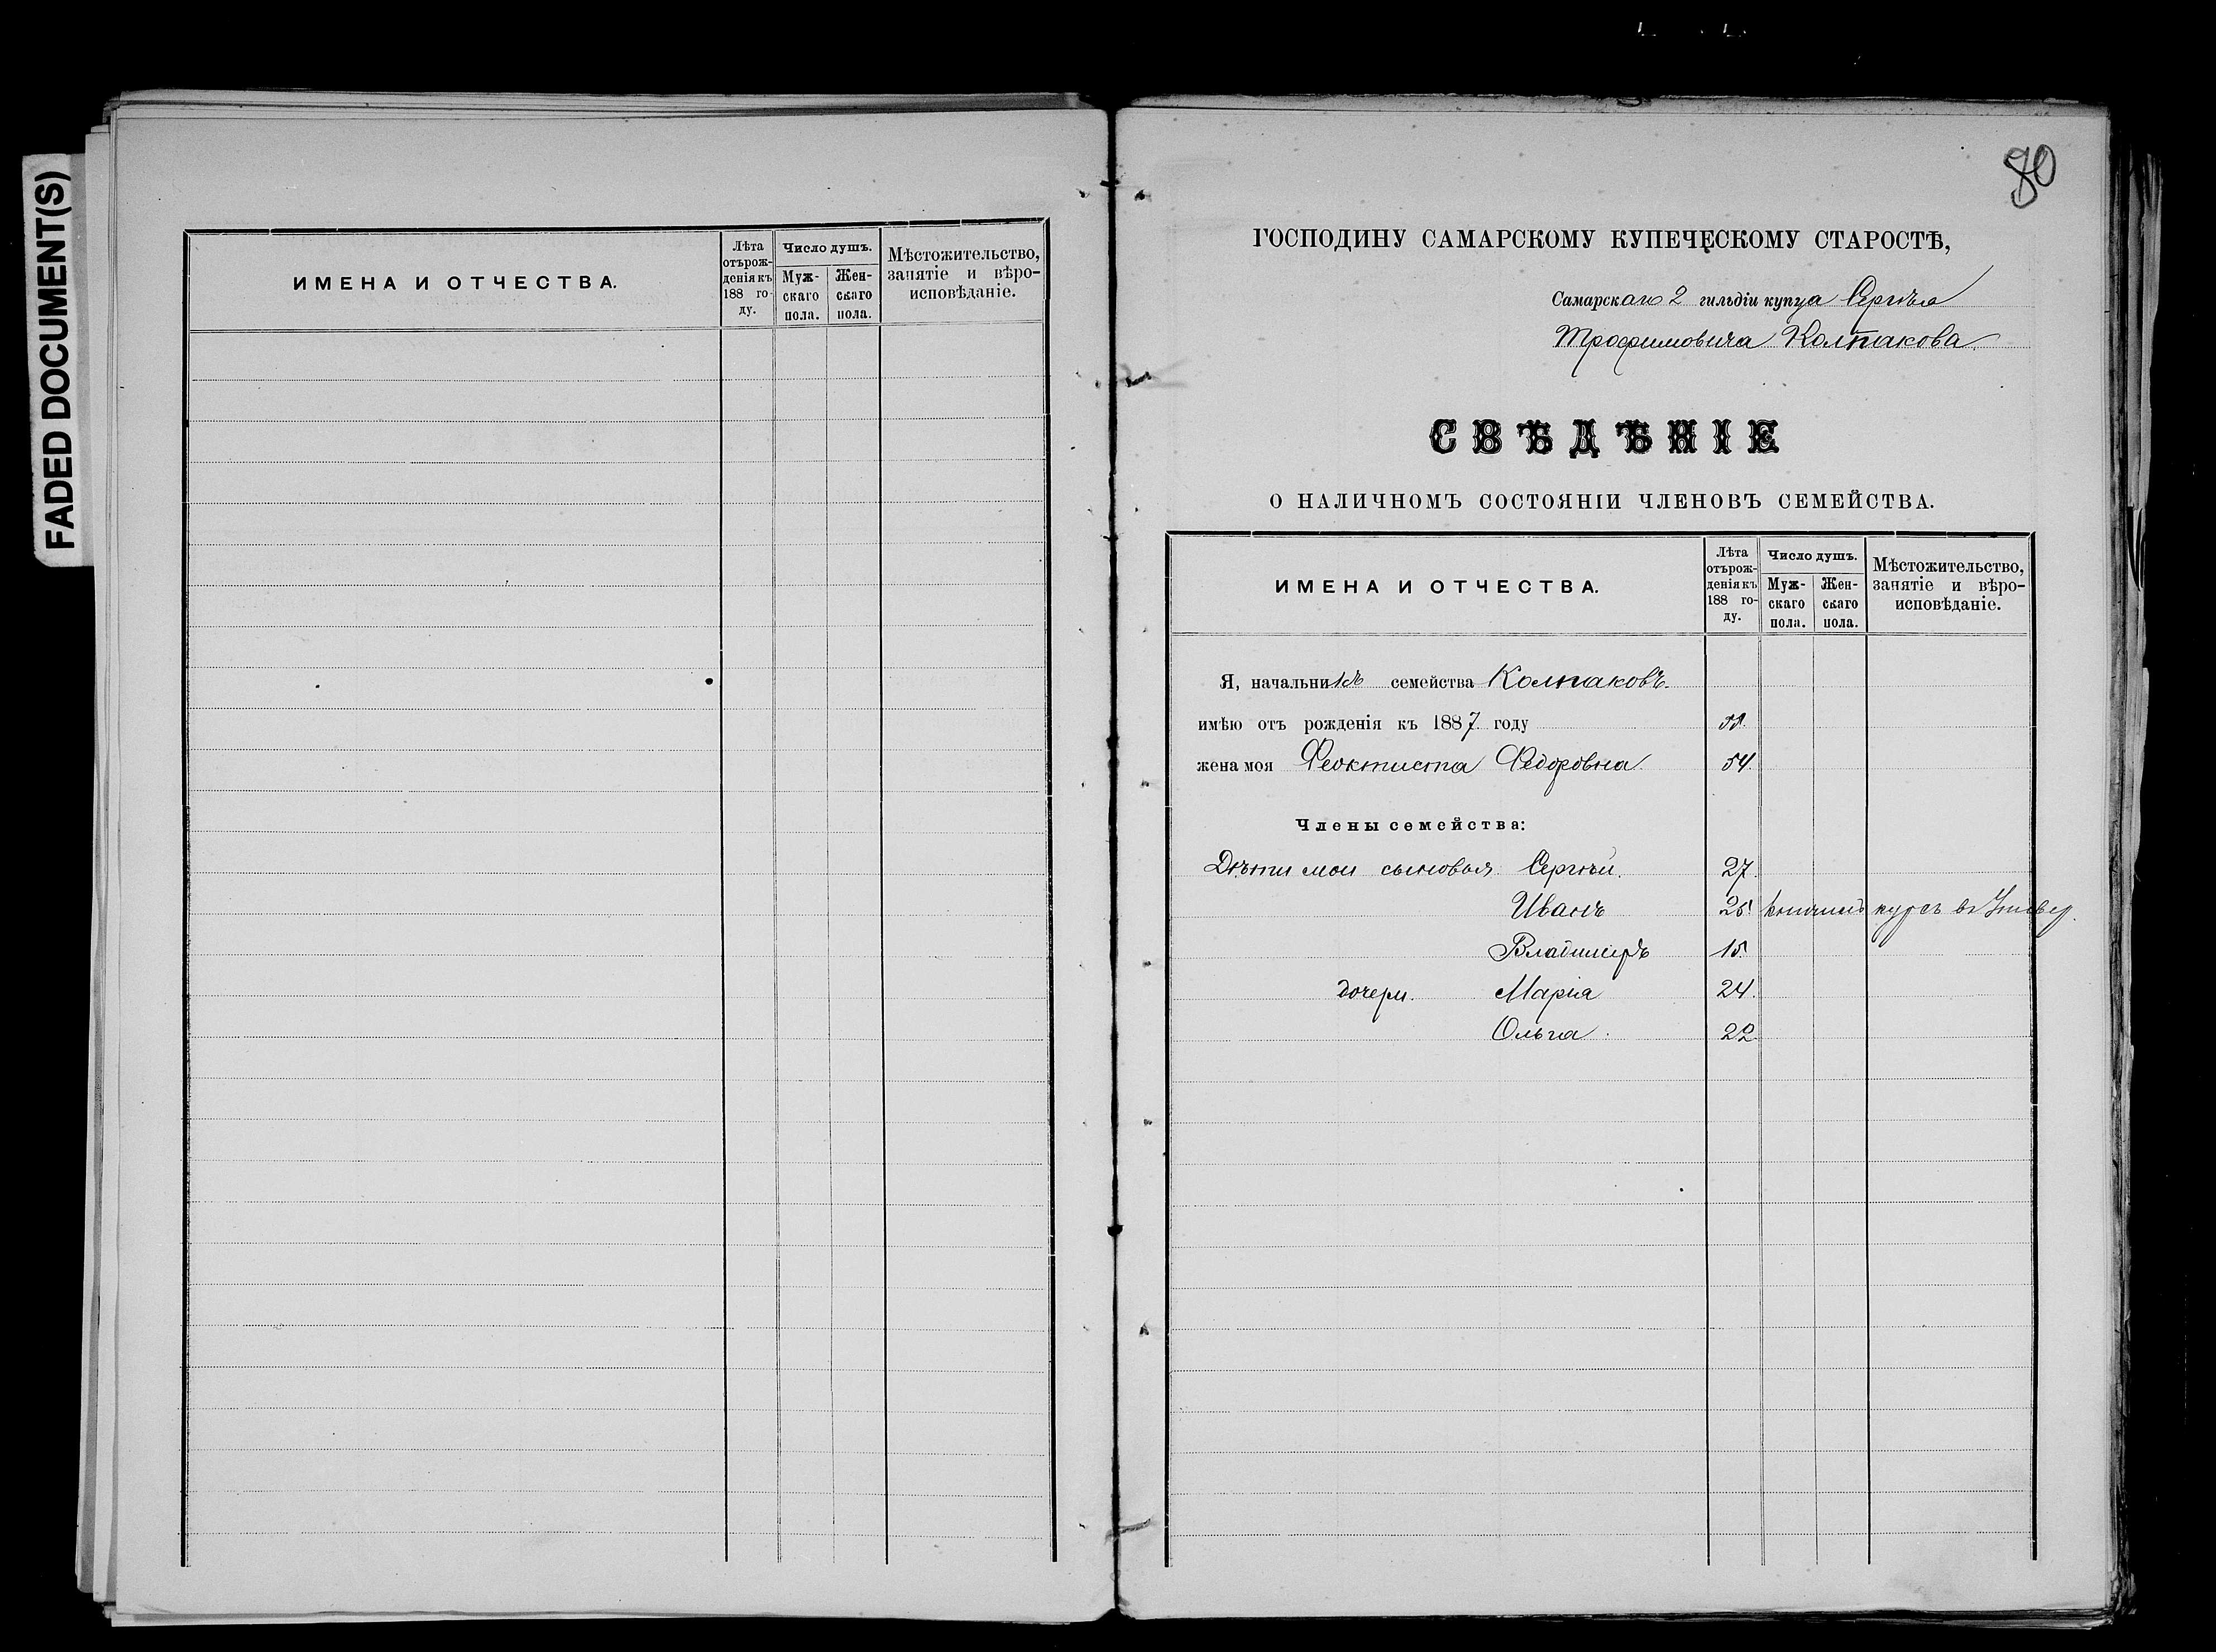 FADED DOCUMENT(S)
ИМЕНА И ОТЧЕСТВА.
Лѣта отърожденія къ 188 году.
Число душъ.
Мужскаго пола.
Женскаго пола.
Мѣстожительство, занятіе и вѣроисповѣданіе.
80
ГОСПОДИНУ САМАРСКОМУ КУПЕЧЕСКОМУ СТАРОСТѢ,
Самарскаго 2 гильдіи купца Сергѣя
Трофимовича Колпакова
СВѢДѢНІЕ
О НАЛИЧНОМЪ СОСТОЯНІИ ЧЛЕНОВЪ СЕМЕЙСТВА.
ИМЕНА И ОТЧЕСТВА.
Лѣта отърожденія къ 188 году.
Число душъ.
Мужскаго пола.
Женскаго пола.
Мѣстожительство, занятіе и вѣроисповѣданіе.
Я, начальникъ семейства Колпаковъ.
имѣю отъ рожденія къ 1887 году
жена моя Феоктиста Федоровна. 54.
Члены семейства:
Дѣти мои сыновья Сергѣй. 27.
Иванъ курсъ въ Универ.
Владимиръ 15.
дочери. Марія 24.
Ольга. 22.